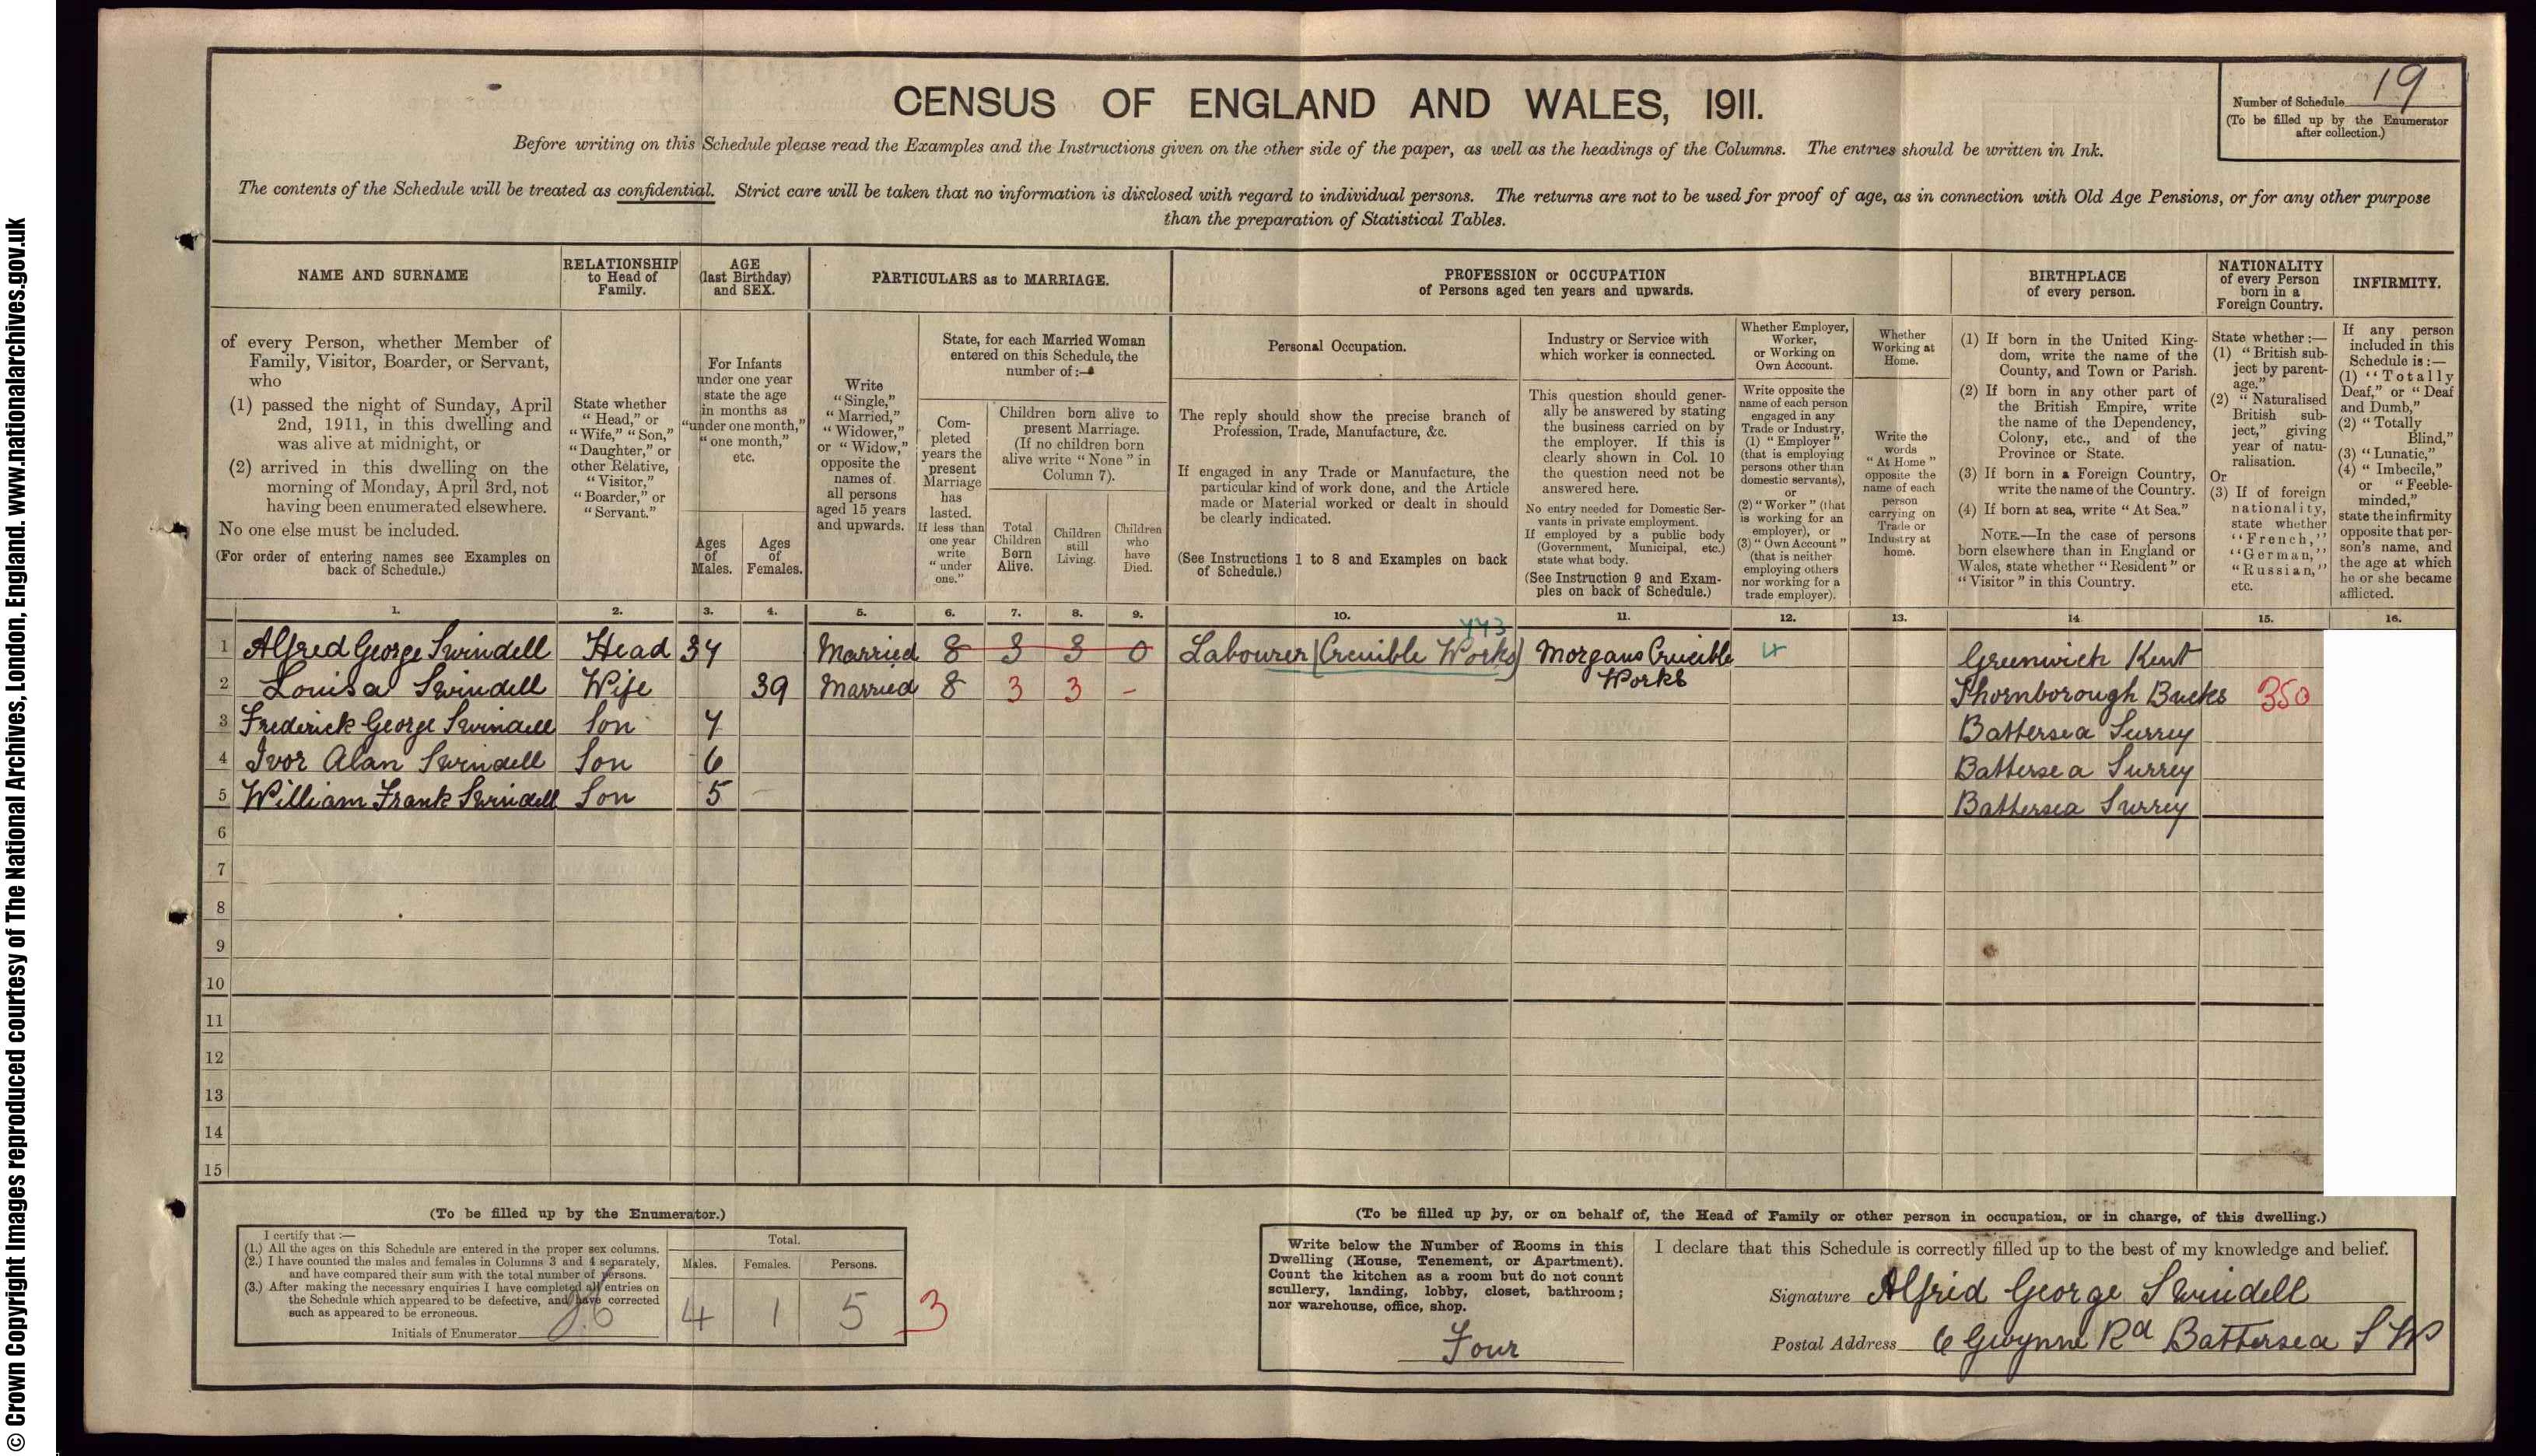 © Crown Copyright Images reproduced courtesy of The National Archives, London, England. www.nationalarchives.gov.uk
CENSUS OF ENGLAND AND WALES, 1911.
Number of Schedule 19
(To be filled up by the Enumerator
after collection.)
Before writing on this Schedule please read the Examples and the Instructions given on the other side of the paper, as well as the headings of the Columns. The entries should be written in Ink.
The contents of the Schedule will be treated as confidential. Strict care will be taken that no information is disclosed with regard to individual persons. The returns are not to be used for proof of age, as in connection with Old Age Pensions, or for any other purpose
than the preparation of Statistical Tables.
NAME AND SURNAME
of every Person, whether Member of
Family, Visitor, Boarder, or Servant,
who
(1) passed the night of Sunday, April
2nd, 1911, in this dwelling and
was alive at midnight, or
(2) arrived in this dwelling on the
morning of Monday, April 3rd, not
having been enumerated elsewhere.
No one else must be included.
(For order of entering names see Examples on
back of Schedule.)
RELATIONSHIP
to Head of
Family.
State whether
"Head," or
"Wife," "Son,"
"Daughter," or
other Relative,
"Visitor,"
"Boarder," or
"Servant."
AGE
(last Birthday)
and SEX.
For Infants
under one year
state the age
in months as
"under one month,"
"one month,"
etc.
Ages
of
Males.
Ages
of
Females.
PARTICULARS as to MARRIAGE.
Write
"Single,"
"Married,"
"Widower,"
or "Widow,"
opposite the
names of
all persons
aged 15 years
and upwards.
State, for each Married Woman
entered on this Schedule, the
number of:—
Com-
pleted
years the
present
Marriage
has
lasted.
If less than
one year
write
"under
one."
Children born alive to
present Marriage.
(If no children born
alive write "None" in
Column 7).
Total
Children
Born
Alive.
Children
still
Living.
Children
who
have
Died.
PROFESSION or OCCUPATION
of Persons aged ten years and upwards.
Personal Occupation.
The reply should show the precise branch of
Profession, Trade, Manufacture, &c.
If engaged in any Trade or Manufacture, the
particular kind of work done, and the Article
made or Material worked or dealt in should
be clearly indicated.
(See Instructions 1 to 8 and Examples on back
of Schedule.)
Industry or Service with
which worker is connected.
This question should gener-
ally be answered by stating
the business carried on by
the employer. If this is
clearly shown in Col. 10
the question need not be
answered here.
No entry needed for Domestic Ser-
vants in private employment.
If employed by a public body
(Government, Municipal, etc.)
state what body.
(See Instruction 9 and Exam-
ples on back of Schedule.)
Whether Employer,
Worker,
or Working on
Own Account.
Write opposite the
name of each person
engaged in any
Trade or Industry,
(1) "Employer"
(that is employing
persons other than
domestic servants),
or
(2) "Worker" (that
is working for an
employer), or
(3) "Own Account"
(that is neither
employing others
nor working for a
trade employer).
Whether
Working at
Home.
Write the
words
"At Home"
opposite the
name of each
person
carrying on
Trade or
Industry at
home.
BIRTHPLACE
of every person.
(1) If born in the United King-
dom, write the name of the
County, and Town or Parish.
(2) If born in any other part of
the British Empire, write
the name of the Dependency,
Colony, etc., and of the
Province or State.
(3) If born in a Foreign Country,
write the name of the Country.
(4) If born at sea, write "At Sea."
NOTE.—In the case of persons
born elsewhere than in England or
Wales, state whether "Resident" or
"Visitor" in this Country.
NATIONALITY
of every Person
born in a
Foreign Country.
State whether:—
(1) "British sub-
ject by parent-
age."
(2) "Naturalised
British sub-
ject," giving
year of natu-
ralisation.
Or
(3) If of foreign
nationality,
state whether
"French,"
"German,"
"Russian,"
etc.
INFIRMITY.
If any person
included in this
Schedule is:—
(1) "Totally
Deaf," or "Deaf
and Dumb,"
(2) "Totally
Blind,"
(3) "Lunatic,"
(4) "Imbecile,"
or "Feeble-
minded,"
state the infirmity
opposite that per-
son's name, and
the age at which
he or she became
afflicted.
1. 2. 3. 4. 5. 6. 7. 8. 9. 10. 11. 12. 13. 14 15. 16.
443
1 Alfred George Swindell Head 34 Married 8 3 3 0 Labourer (Crucible Works) Morgans Crucible Works 4 Greenwich Kent
2 Louisa Swindell Wife 39 Married 8 3 3 - Thornborough Bucks 350
3 Frederick George Swindell Son 7 Battersea Surrey
4 Ivor Alan Swindell Son 6 Battersea Surrey
5 William Frank Swindell Son 5 Battersea Surrey
6
7
8
9
10
11
12
13
14
15
(To be filled up by the Enumerator.)
I certify that:—
(1.) All the ages on this Schedule are entered in the proper sex columns.
(2.) I have counted the males and females in Columns 3 and 4 separately,
and have compared their sum with the total number of persons.
(3.) After making the necessary enquiries I have completed all entries on
the Schedule which appeared to be defective, and have corrected
such as appeared to be erroneous.
Initials of Enumerator
Total.
Males. Females. Persons.
4 1 5 3
(To be filled up by, or on behalf of, the Head of Family or other person in occupation, or in charge, of this dwelling.)
Write below the Number of Rooms in this
Dwelling (House, Tenement, or Apartment).
Count the kitchen as a room but do not count
scullery, landing, lobby, closet, bathroom;
nor warehouse, office, shop.
Four
I declare that this Schedule is correctly filled up to the best of my knowledge and belief.
Signature Alfrid George Swindell
Postal Address 6 Gwynne Rd Battersea SW